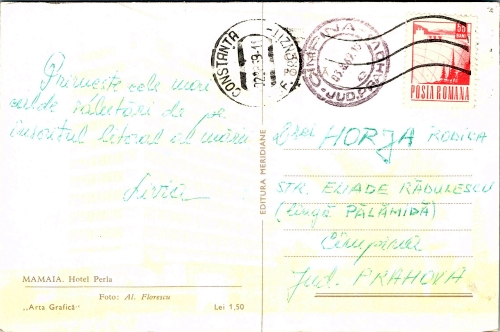 Primește cele mai
calde salutări de pe
însoritul litoral al mării
Livia
MAMAIA. Hotel Perla
Foto: Al. Florescu
„Arta Grafică"
Lei 1,50
EDITURA MERIDIANE
CONSTANȚA
CÎMPINA
JUD. PRAHOVA
55
BANI
POSTA ROMANA
HORJA RODICA
STR. ELIADE RĂDULESCU
(lîngă PĂLĂMIDĂ)
Cîmpina
Jud. PRAHOVA